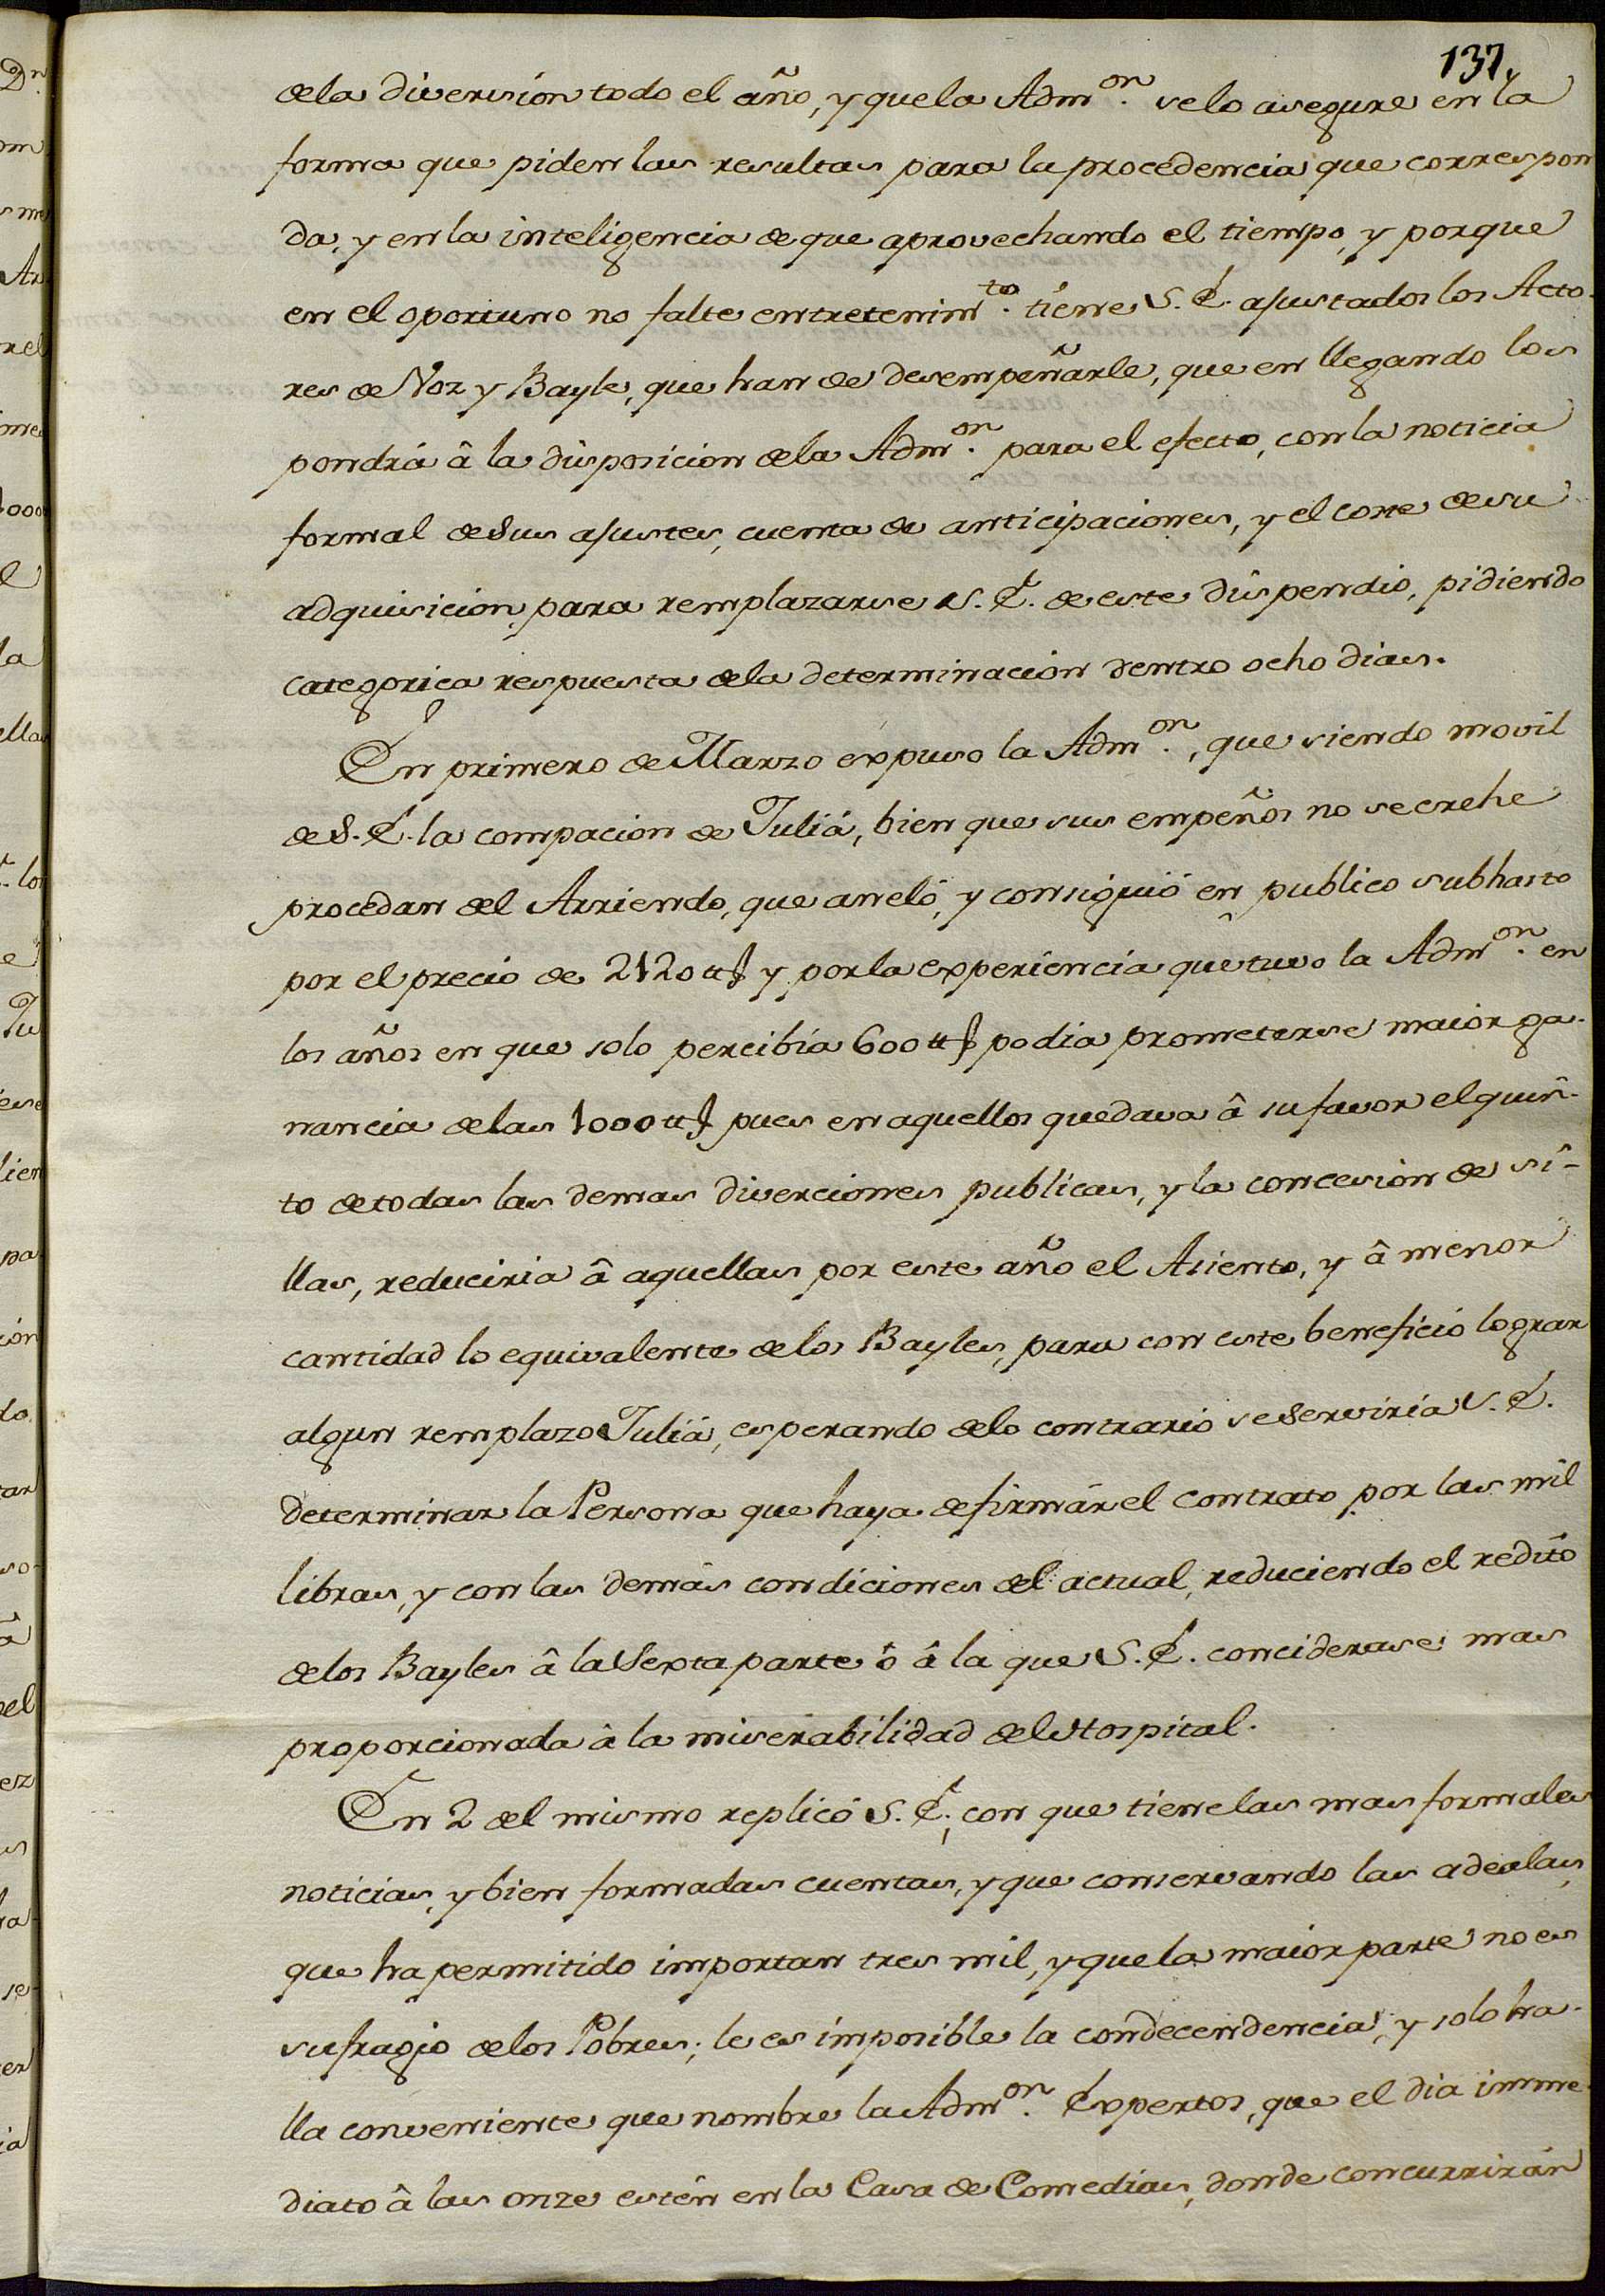 137.
dela diversion todo el año, y que la Adm.on se lo asegure en la
forma que piden las resultas para la procedencia que correspon
da, y en la inteligencia de que aprovechando el tiempo, y porque
en el oportuno no falte entretenim.to tiene S. E. ajustados los Acto-
res de Voz y Bayle, que han de desempeñarle, que en llegando los
pondrá â la disposicion dela Adm.on para el efecto, con la noticia
formal de sus ajustes, cuenta de anticipaciones, y el coste de su
adquisicion, para remplazarse S. E. de este dispendio, pidiendo
categorica respuesta dela determinacion dentro ocho dias.
En primero de Marzo expuso la Adm.on, que siendo movil
de S. E. la compacion de Juliá, bien que sus empeños no se crehe
procedan del Arriendo, que aneló, y consiguió en publico subhasto
por el precio de 2120 ₶ y por la experiencia que tuvo la Adm.on en
los años en que solo percibia 600 ₶ podia prometerse maior ga-
nancia delas 1000 ₶ pues en aquellos quedava â su favor el quin-
to de todas las demas diverciones publicas, y la concesion de si-
llas, reduciria â aquellas por este año el Asiento, y â menor
cantidad lo equivalente delos Bayles, para con este beneficio lograr
algun remplazo Juliá, esperando delo contrario se serviria S. E.
determinar la Persona que haya de firmar el contrato por las mil
libras, y con las demás condiciones del actual, reduciendo el redito
delos Bayles â la Sexta parte ô â la que S. E. conciderase mas
proporcionada â la miserabilidad del Hospital.
En 2 del mismo replicó S. E., con que tiene las mas formales
noticias, y bien formadas cuentas, y que conservando las adealas,
que ha permitido importan tres mil, y que la maior parte no es
sufragio delos Pobres; le es imposible la condecendencia, y solo ha-
lla conveniente que nombre la Adm.on Expertos, que el dia imme-
diato â las onze estén en la Casa de Comedias, donde concurrirán